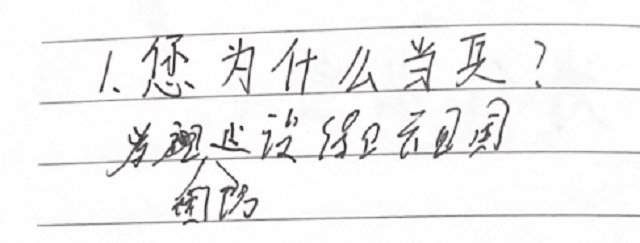 1.您为什么当兵?
为建设保卫祖国
国防